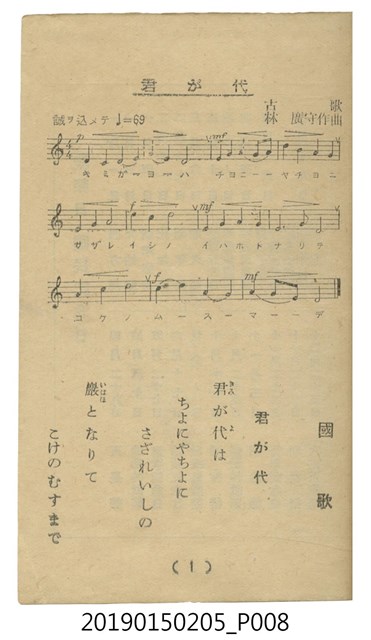 君が代
古歌
林廣守作曲
誠ヲ込メテ ♩=69
p mf
キミガーヨーハ チヨニーーヤチヨニ
f mf
サザレイシノ イハホトナリテ
f mf
コケノムースーマーーデ
國歌
君が代
君が代は
きみ よ
ちよにやちよに
さざれいしの
巖となりて
いはほ
こけのむすまで
(1)
20190150205_P008